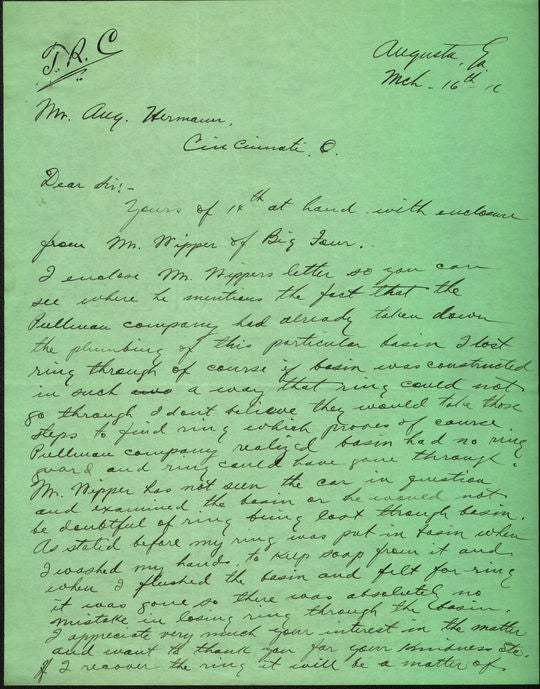 T.R.C
Augusta, Ga
Mch. 16th 16
Mr. Aug. Hermann,
Cincinnati, O.
Dear Sir:-
Yours of 14th at hand with enclosure
from Mr. Wipper of Big Four.
I enclose Mr. Wippers letter so you can
see where he mentions the fact that the
Pullman company had already taken down
the plumbing of this particular basin I lost
ring through of course if basin was constructed
in such a way that ring could not
go through I dont believe they would take those
steps to find ring which proves of course
Pullman company realized basin had no ring
guard and ring could have gone through.
Mr. Wipper has not seen the car in question
and examined the basin or he would not
be doubtful of ring being lost through basin.
As stated before my ring was put in basin when
I washed my hands, to keep soap from it and
when I flushed the basin and felt for ring
it was gone so there was absolutely no
mistake in losing ring through the basin.
I appreciate very much your interest in the matter
and want to thank you for your kindness etc.
If I recover the ring it will be a matter of